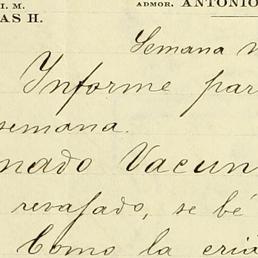 I. M.
AS H.
ADMOR. ANTONIO
Semana
Informe par
semana.
nado Vacun
revasado, se bé
Como la criá